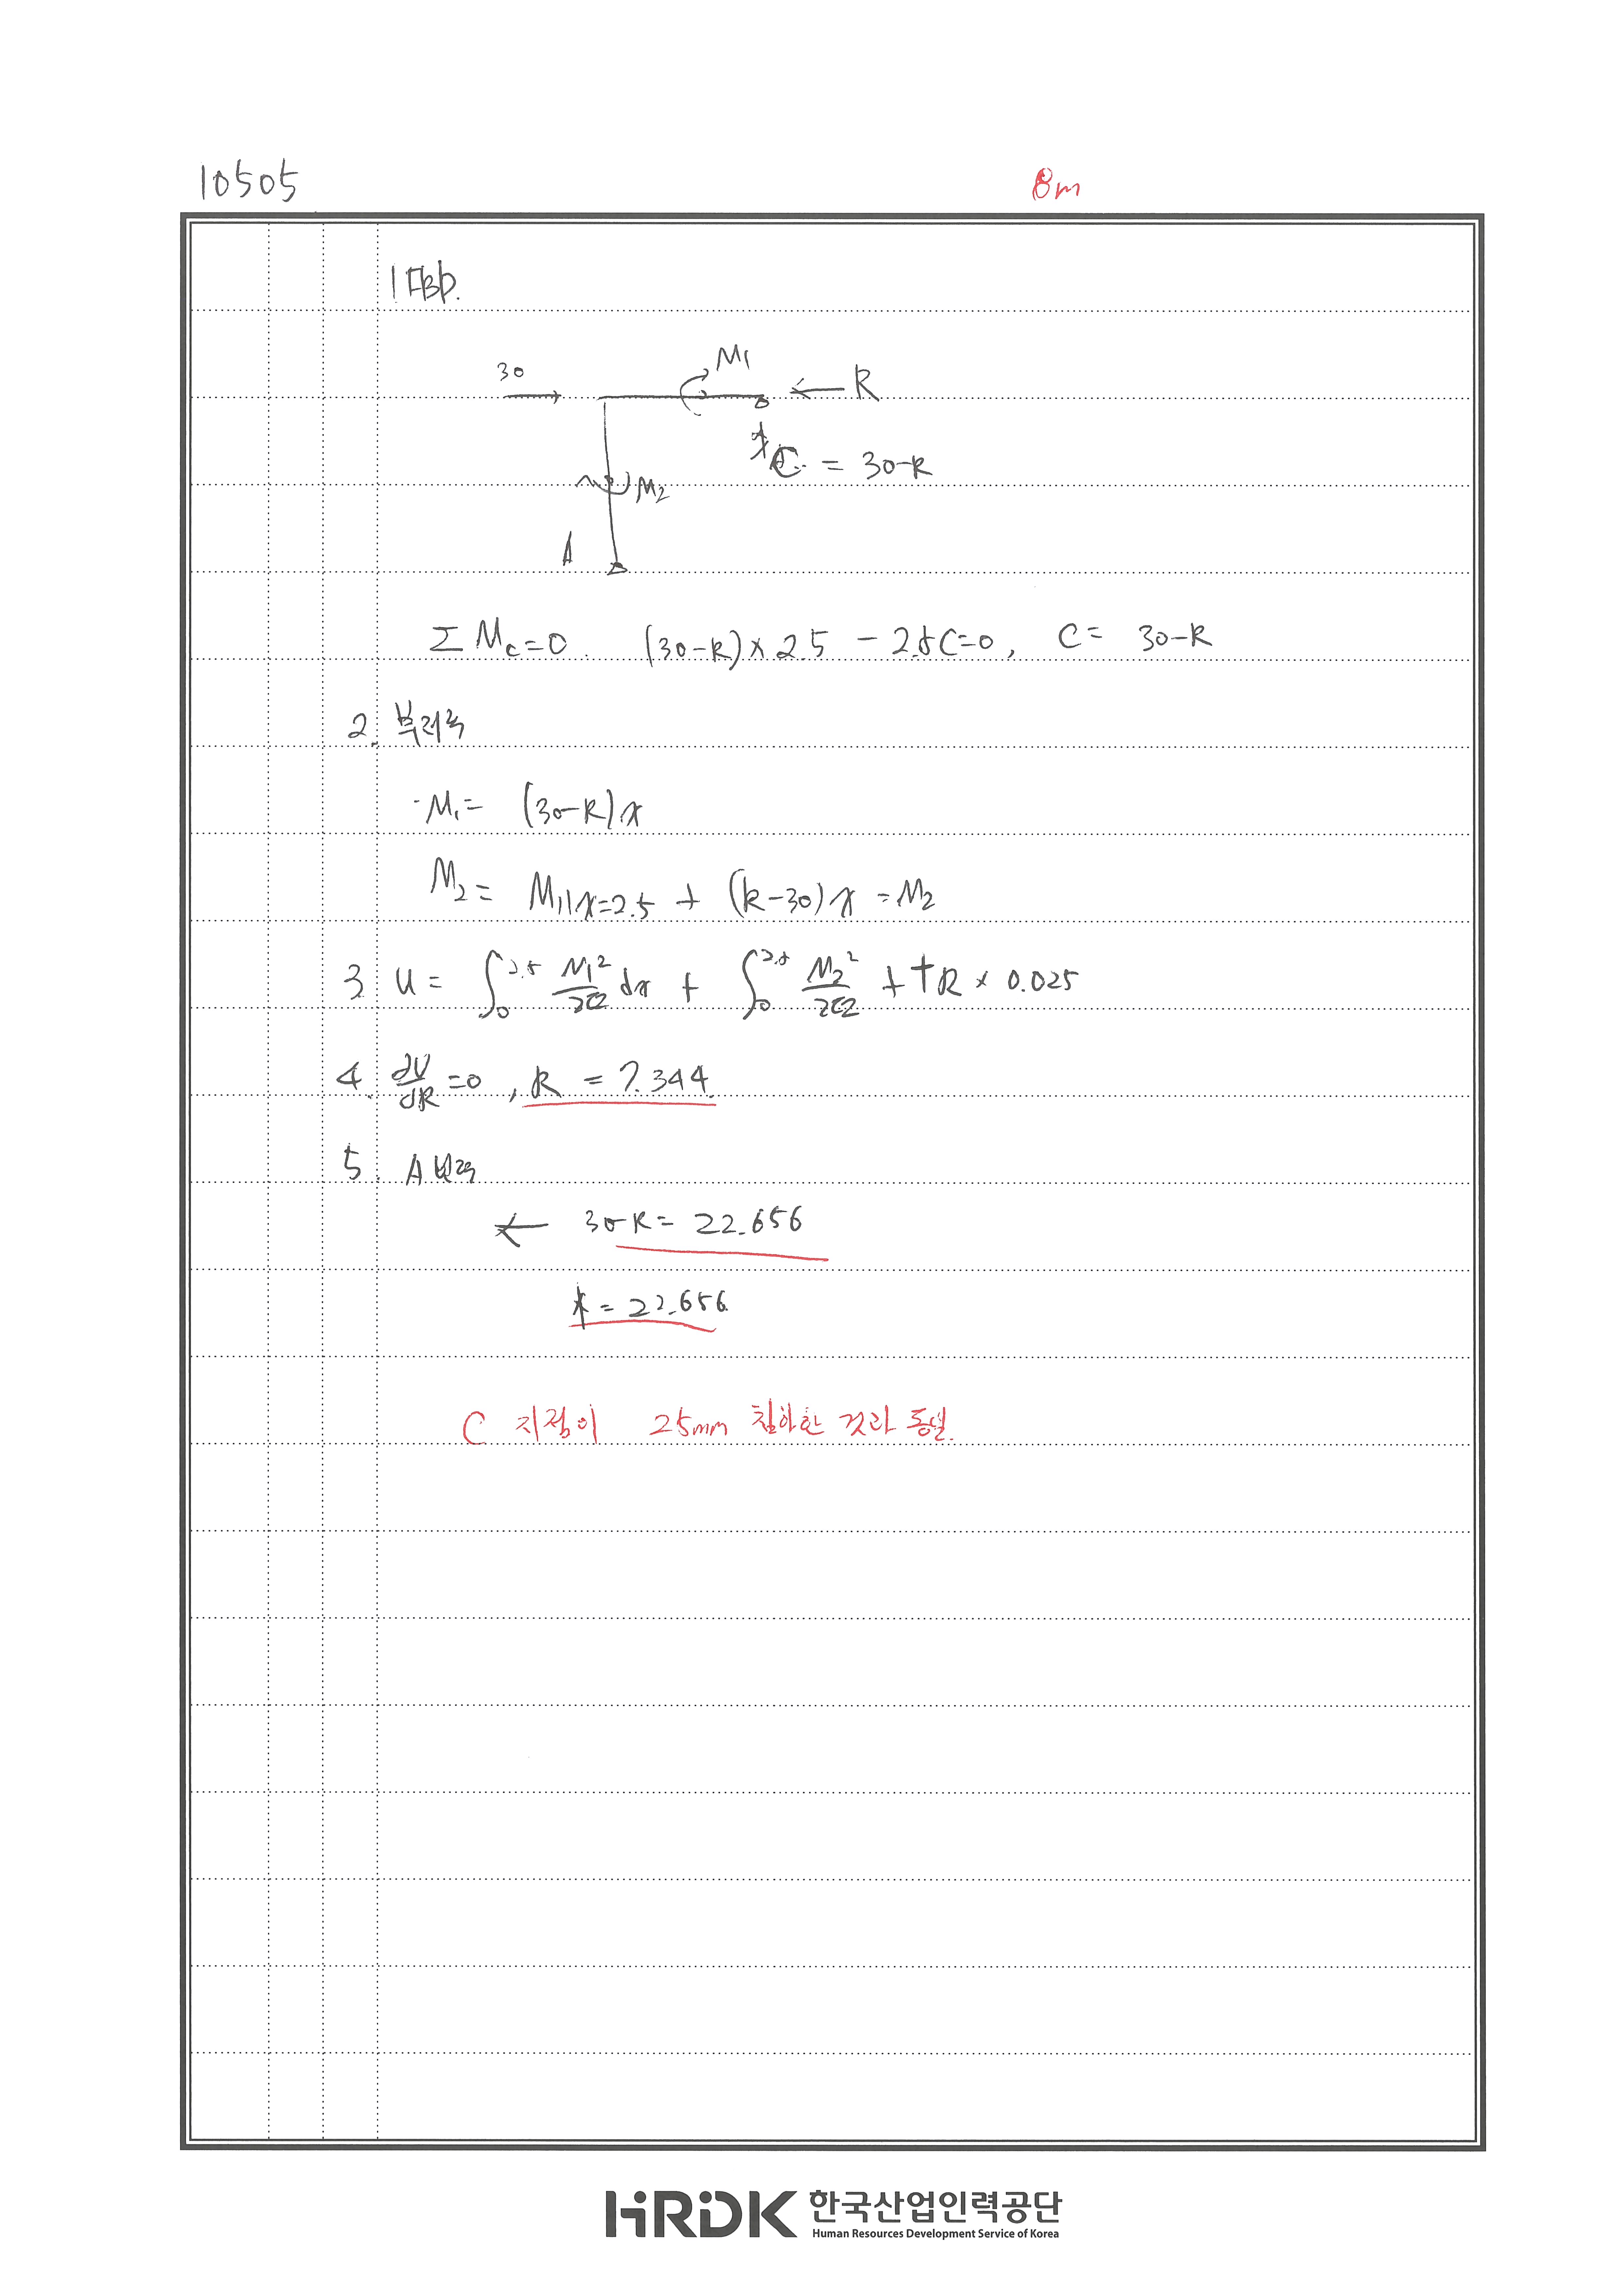 10505
8m
1 FBD.
30
M1
R
C = 30-R
M2
A
ΣMc=0. (30-R)×2.5 - 2.5C=0, C= 30-R
2. 부재력
·M1= (30-R)x
M2= M1|x=2.5 + (R-30)x = M2
3 U= ∫0 2.5 M1²/2EI dx + ∫0 2.5 M2²/2EI + R × 0.025
4. ∂U/∂R =0, R = 7.344
5. A 반력
← 30-R= 22.656
= 22.656
C 지점이 25mm 침하한 것과 동일.
HRDK 한국산업인력공단
Human Resources Development Service of Korea